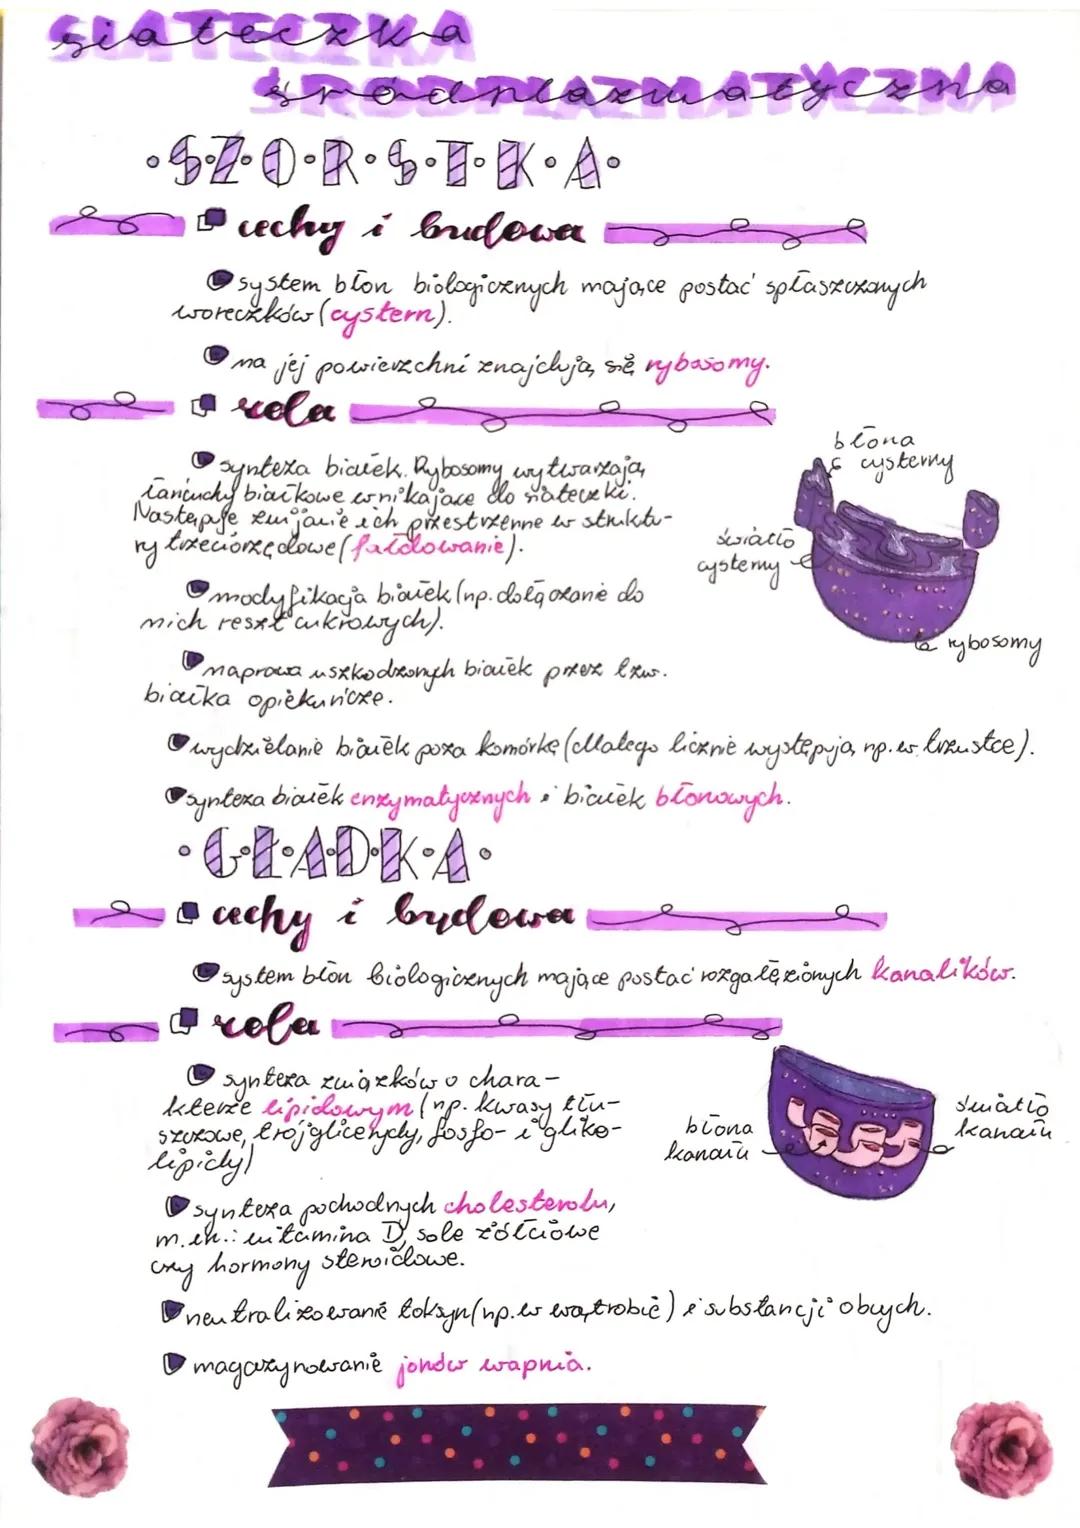 siateczka
śródplazmatyczna
•S•Z•O•R•S•T•K•A•
cechy i budowa
system błon biologicznych mające postać spłaszczonych
woreczków (cystern).
na jej powierzchni znajdują się rybosomy.
rola
błona
cysterny
synteza białek. Rybosomy wytwarzają
łańcuchy białkowe wnikające do siateczki.
Następuje zwijanie ich przestrzenne w struktu-
ry trzeciorzędowe (fałdowanie).
światło
cysterny
modyfikacja białek (np. dołączanie do
nich reszt cukrowych).
rybosomy
naprawa uszkodzonych białek przez tzw.
białka opiekuńcze.
wydzielanie białek poza komórkę (dlatego licznie występują np. w trzustce).
synteza białek enzymatycznych i białek błonowych.
•G•Ł•A•D•K•A•
cechy i budowa
system błon biologicznych mające postać rozgałęzionych kanalików.
rola
synteza związków o chara-
kterze lipidowym (np. kwasy tłu-
szczowe, trójglicerydy, fosfo- i gliko-
lipidy)
błona
kanału
światło
kanału
synteza pochodnych cholesterolu,
m.in.: witamina D, sole żółciowe
czy hormony steroidowe.
neutralizowanie toksyn (np. w wątrobie) i substancji obcych.
magazynowanie jonów wapnia.